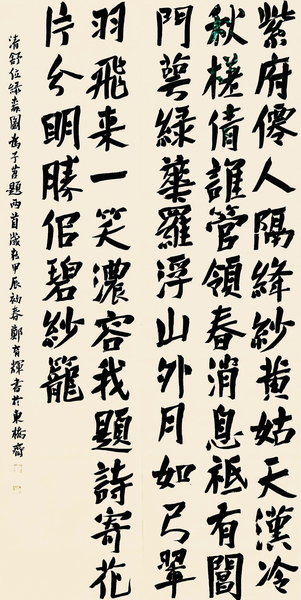 紫府僊人隔絳紗黄姑天漢冷
秋槎倩誰管領春消息祗有閶
門萼綠華羅浮山外月如弓翠
羽飛来一笑濃容我題詩寄花
片分眀勝佀碧紗籠
清舒位綠圖為子題兩首歲在甲辰初春鄭育輝書於東橋齋